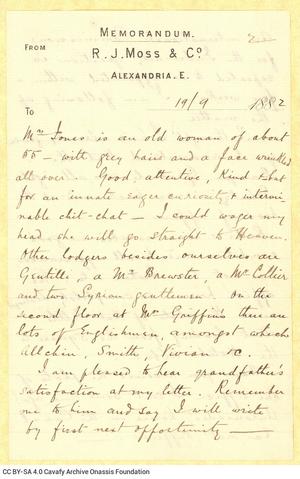 MEMORANDUM.
FROM
R. J. MOSS & Co.
ALEXANDRIA. E.
19/9 1882
TO
Mrs Jones is an old woman of about
55 – with grey hairs and a face wrinkled
all over. Good, attentive, kind & but
for an innate eager curiosity & intermi-
nable chit-chat – I could wager my
head she will go straight to Heaven.
Other lodgers besides ourselves are
Gentille, a Mr Brewster, a Mr Collier
and two Syrian gentlemen. On the
second floor at Mrs Griffin's there are
lots of Englishmen, amongst which
Allchin, Smith, Vivian &c.
I am pleased to hear grandfather's
satisfaction at my letter. Remember
me to him and say I will write
by first next opportunity —
CC BY-SA 4.0 Cavafy Archive Onassis Foundation